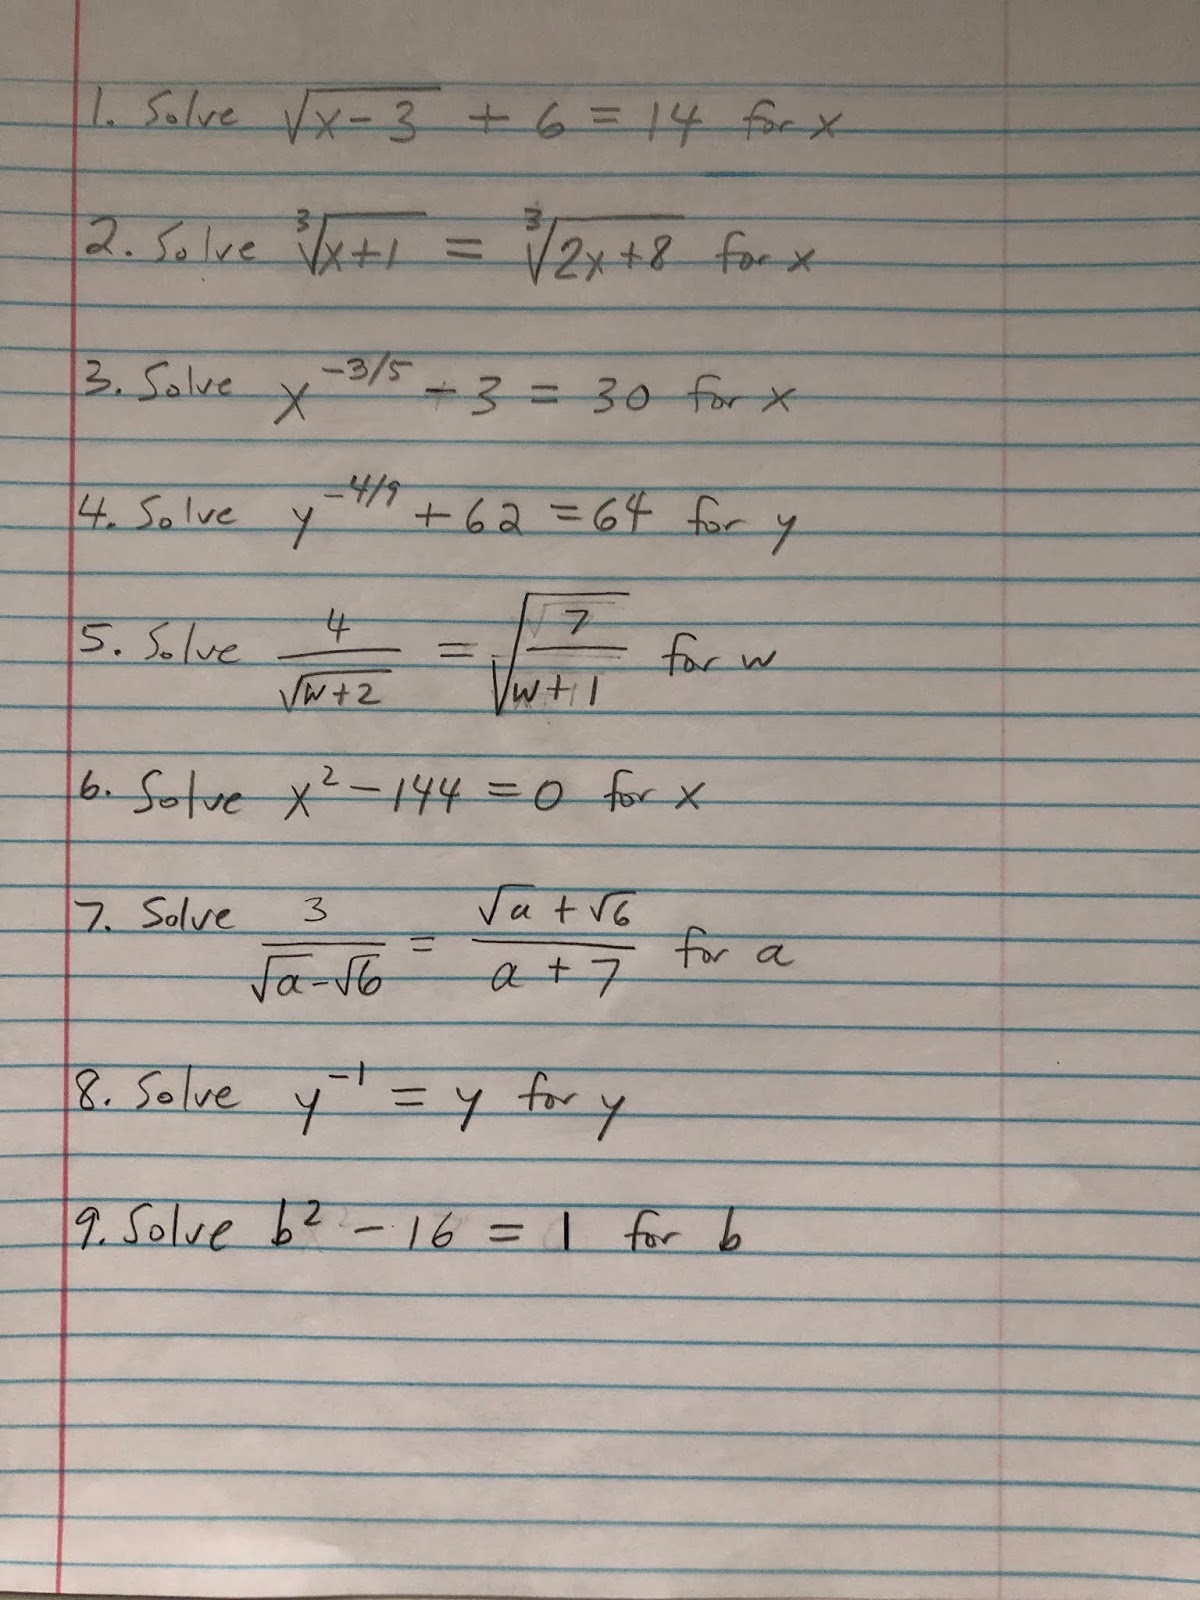 1. Solve √(x-3) + 6 = 14 for x
2. Solve ³√(x+1) = ³√(2x+8) for x
3. Solve x^(-3/5) - 3 = 30 for x
4. Solve y^(-4/9) + 62 = 64 for y
5. Solve 4/√(w+2) = √(7/(w+1)) for w
6. Solve x² - 144 = 0 for x
7. Solve 3/(√a-√6) = (√a + √6)/(a + 7) for a
8. Solve y⁻¹ = y for y
9. Solve b² - 16 = 1 for b